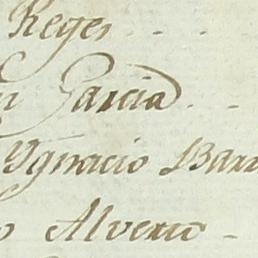 Reyes
Garcia
Ygnacio Barr
o Alverto